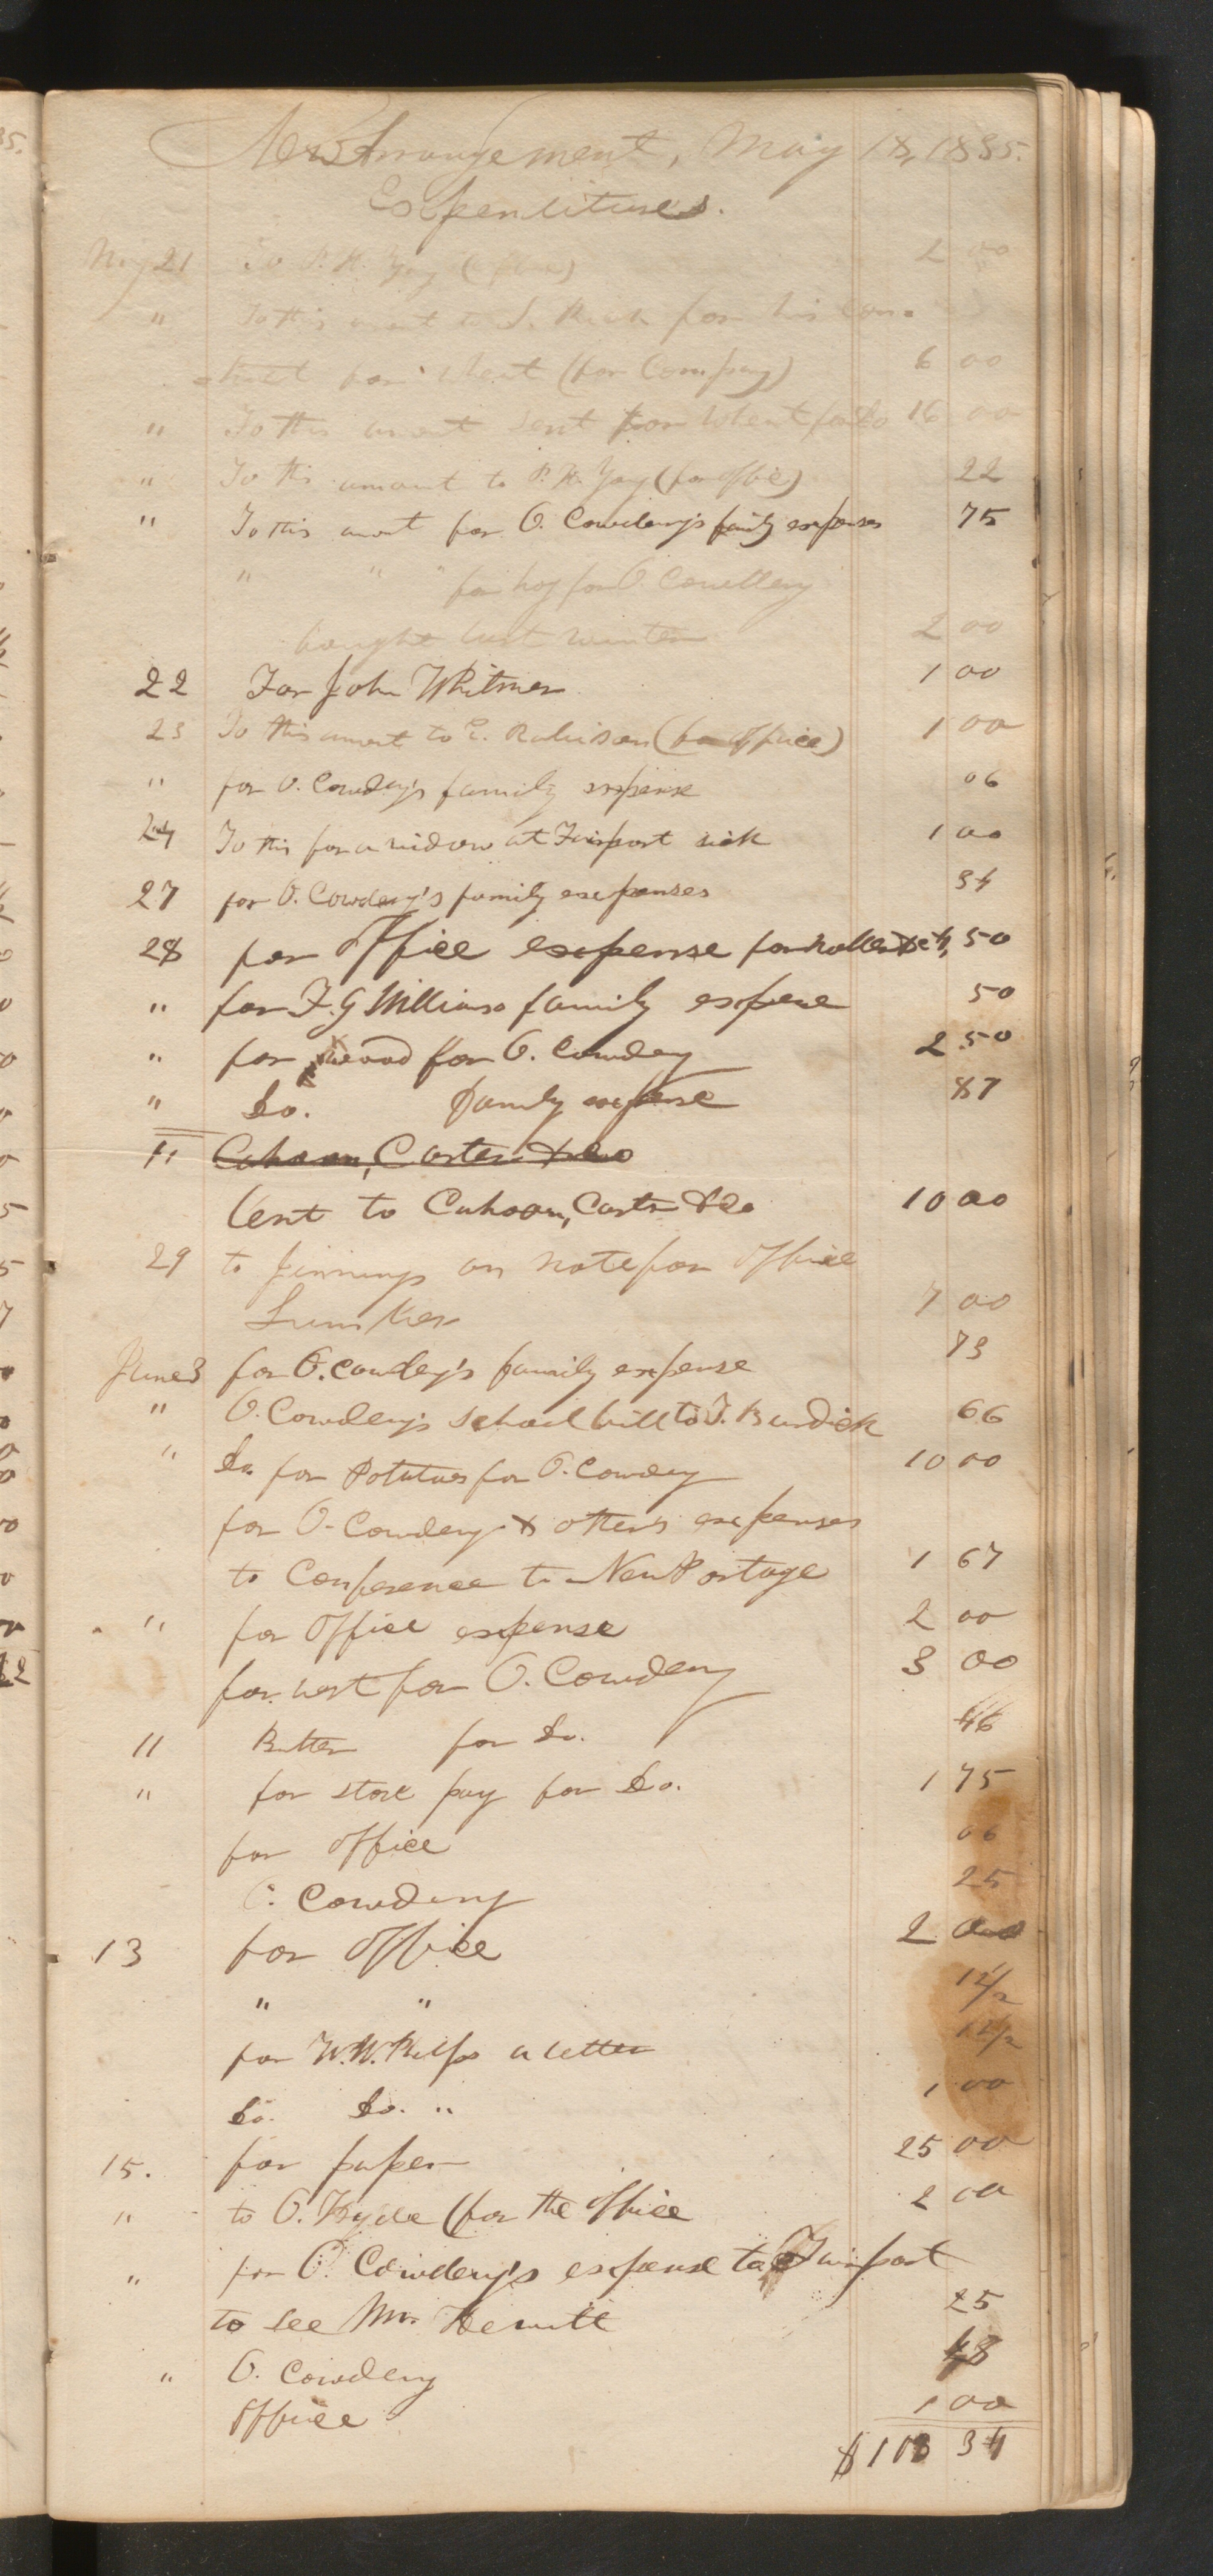 New Arrangement, May 18, 1835.
Expenditures.
May 21 To P. H. Yay ( ) 2 00
" To this amt to L. Rich for his con-
tract for wheat (for Company) 6 00
" To this amont sent for wheat for Co 16 00
" To this amount to P. H. Yay (for office) 22
" To this amont for O. Cowdery's family expenses 75
" " " for hog for O. Cowdery
bought last winter 2 00
22 For John Whitmer 1 00
23 To this amont to E. Robinson (for office) 1 00
" for O. Cowdery's family expense 06
24 To this for a widow at Fairport sick 1 00
27 for O. Cowdery's family expenses 34
28 for Office expense for &c 50
" for F. G Williams family expense 50
" for wood for O. Cowdery 2 50
" Do. family expense 87
" Cahoon, Carter & Co
Lent to Cahoon, Carter & Co 10 00
29 to Jinnings on note for office
Lumber 7 00
June 3 for O. Cowdery's family expense 73
" O. Cowdery's school bill to T. Burdick 66
" Do. for Potatoes for O. Cowdery 10 00
for O. Cowdery & others expenses
to Conference to New Portage 1 67
" for Office expense 2 00
for for O. Cowdery 3 00
11 Butter for Do. 46
" for store pay for Do. 1 75
for office 06
O. Cowdery 25
13 for office 2 00
" " 12 1/2
for W. W. Phelps a letter 12 1/2
Do. Do. " 1 00
15. for paper 25 00
" to O. Hyde (for the office 2 00
" for O. Cowdery's expense to Fairport
to see Mr. Hewitt 25
" O. Cowdery 48
Office 1 00
$103 34